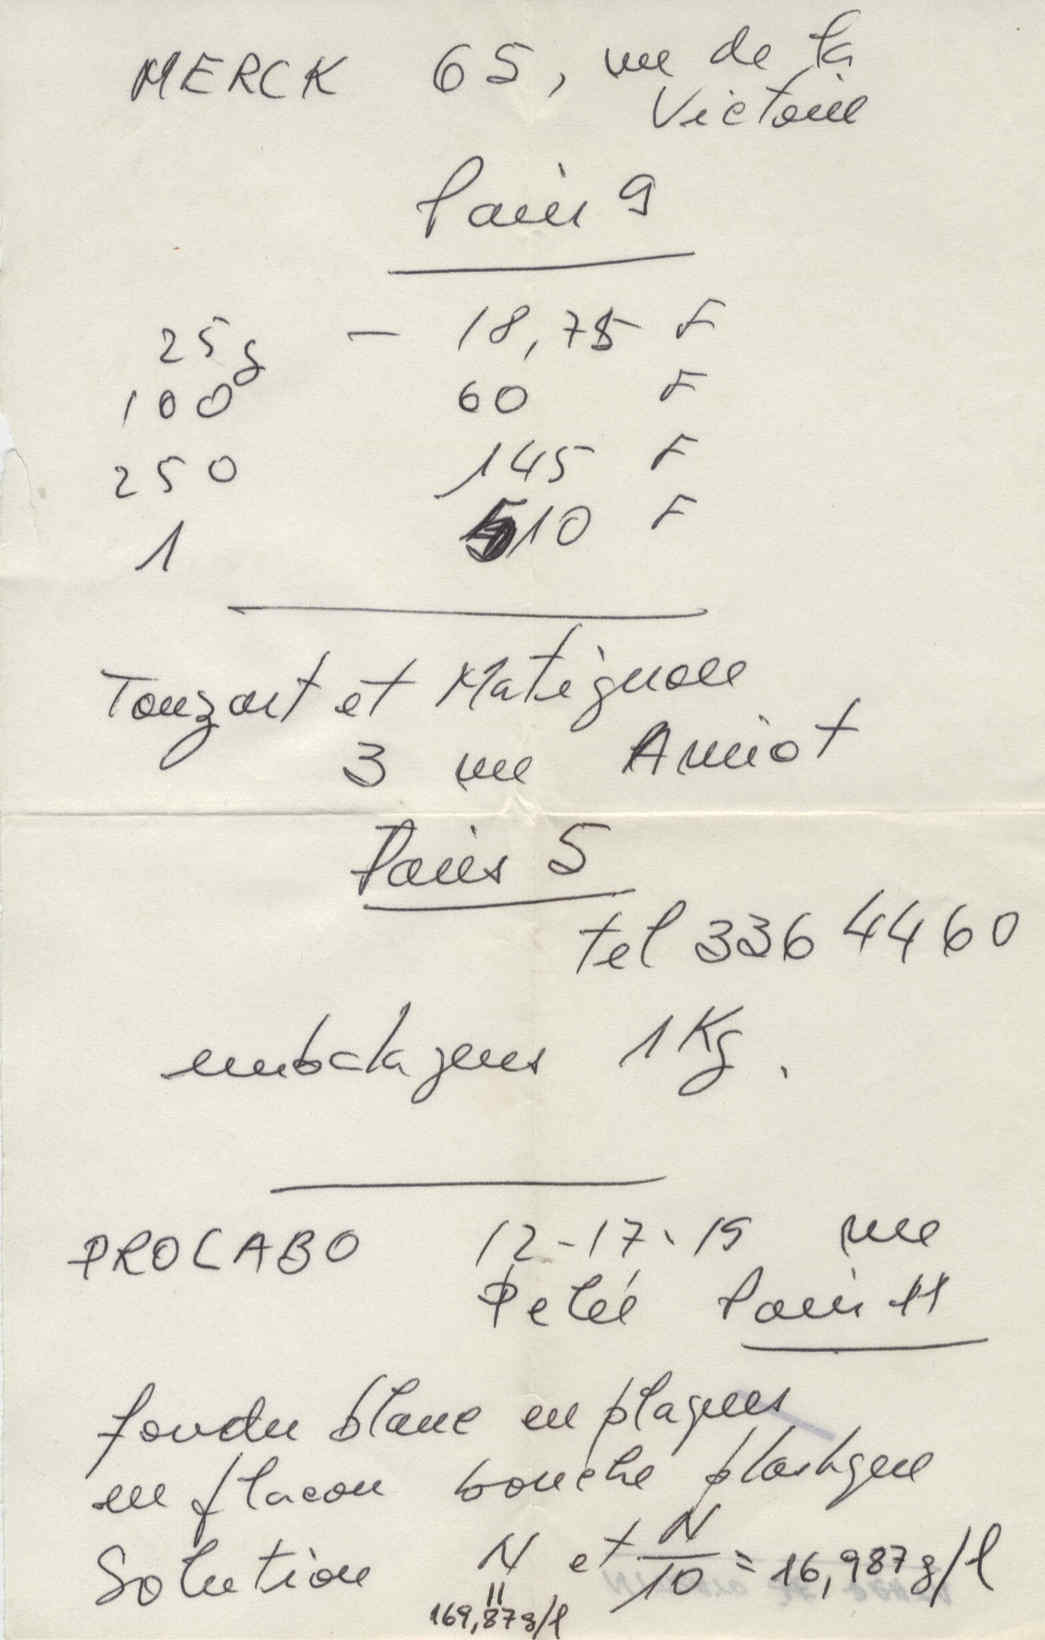 MERCK 65, rue de la
Victoire
Paris 9
25g — 18,75 F
100 60 F
250 145 F
1 510 F
Touzart et Matignon
3 rue Amiot
Paris 5
tel 336 44 60
emballages 1 Kg.
PROLABO 12-17-19 rue
Pelée Paris 11
fondu blanc en plaques
en flacon bouché plastique
Solution N et N/10 = 16,987 g/l
=
169,87 g/l